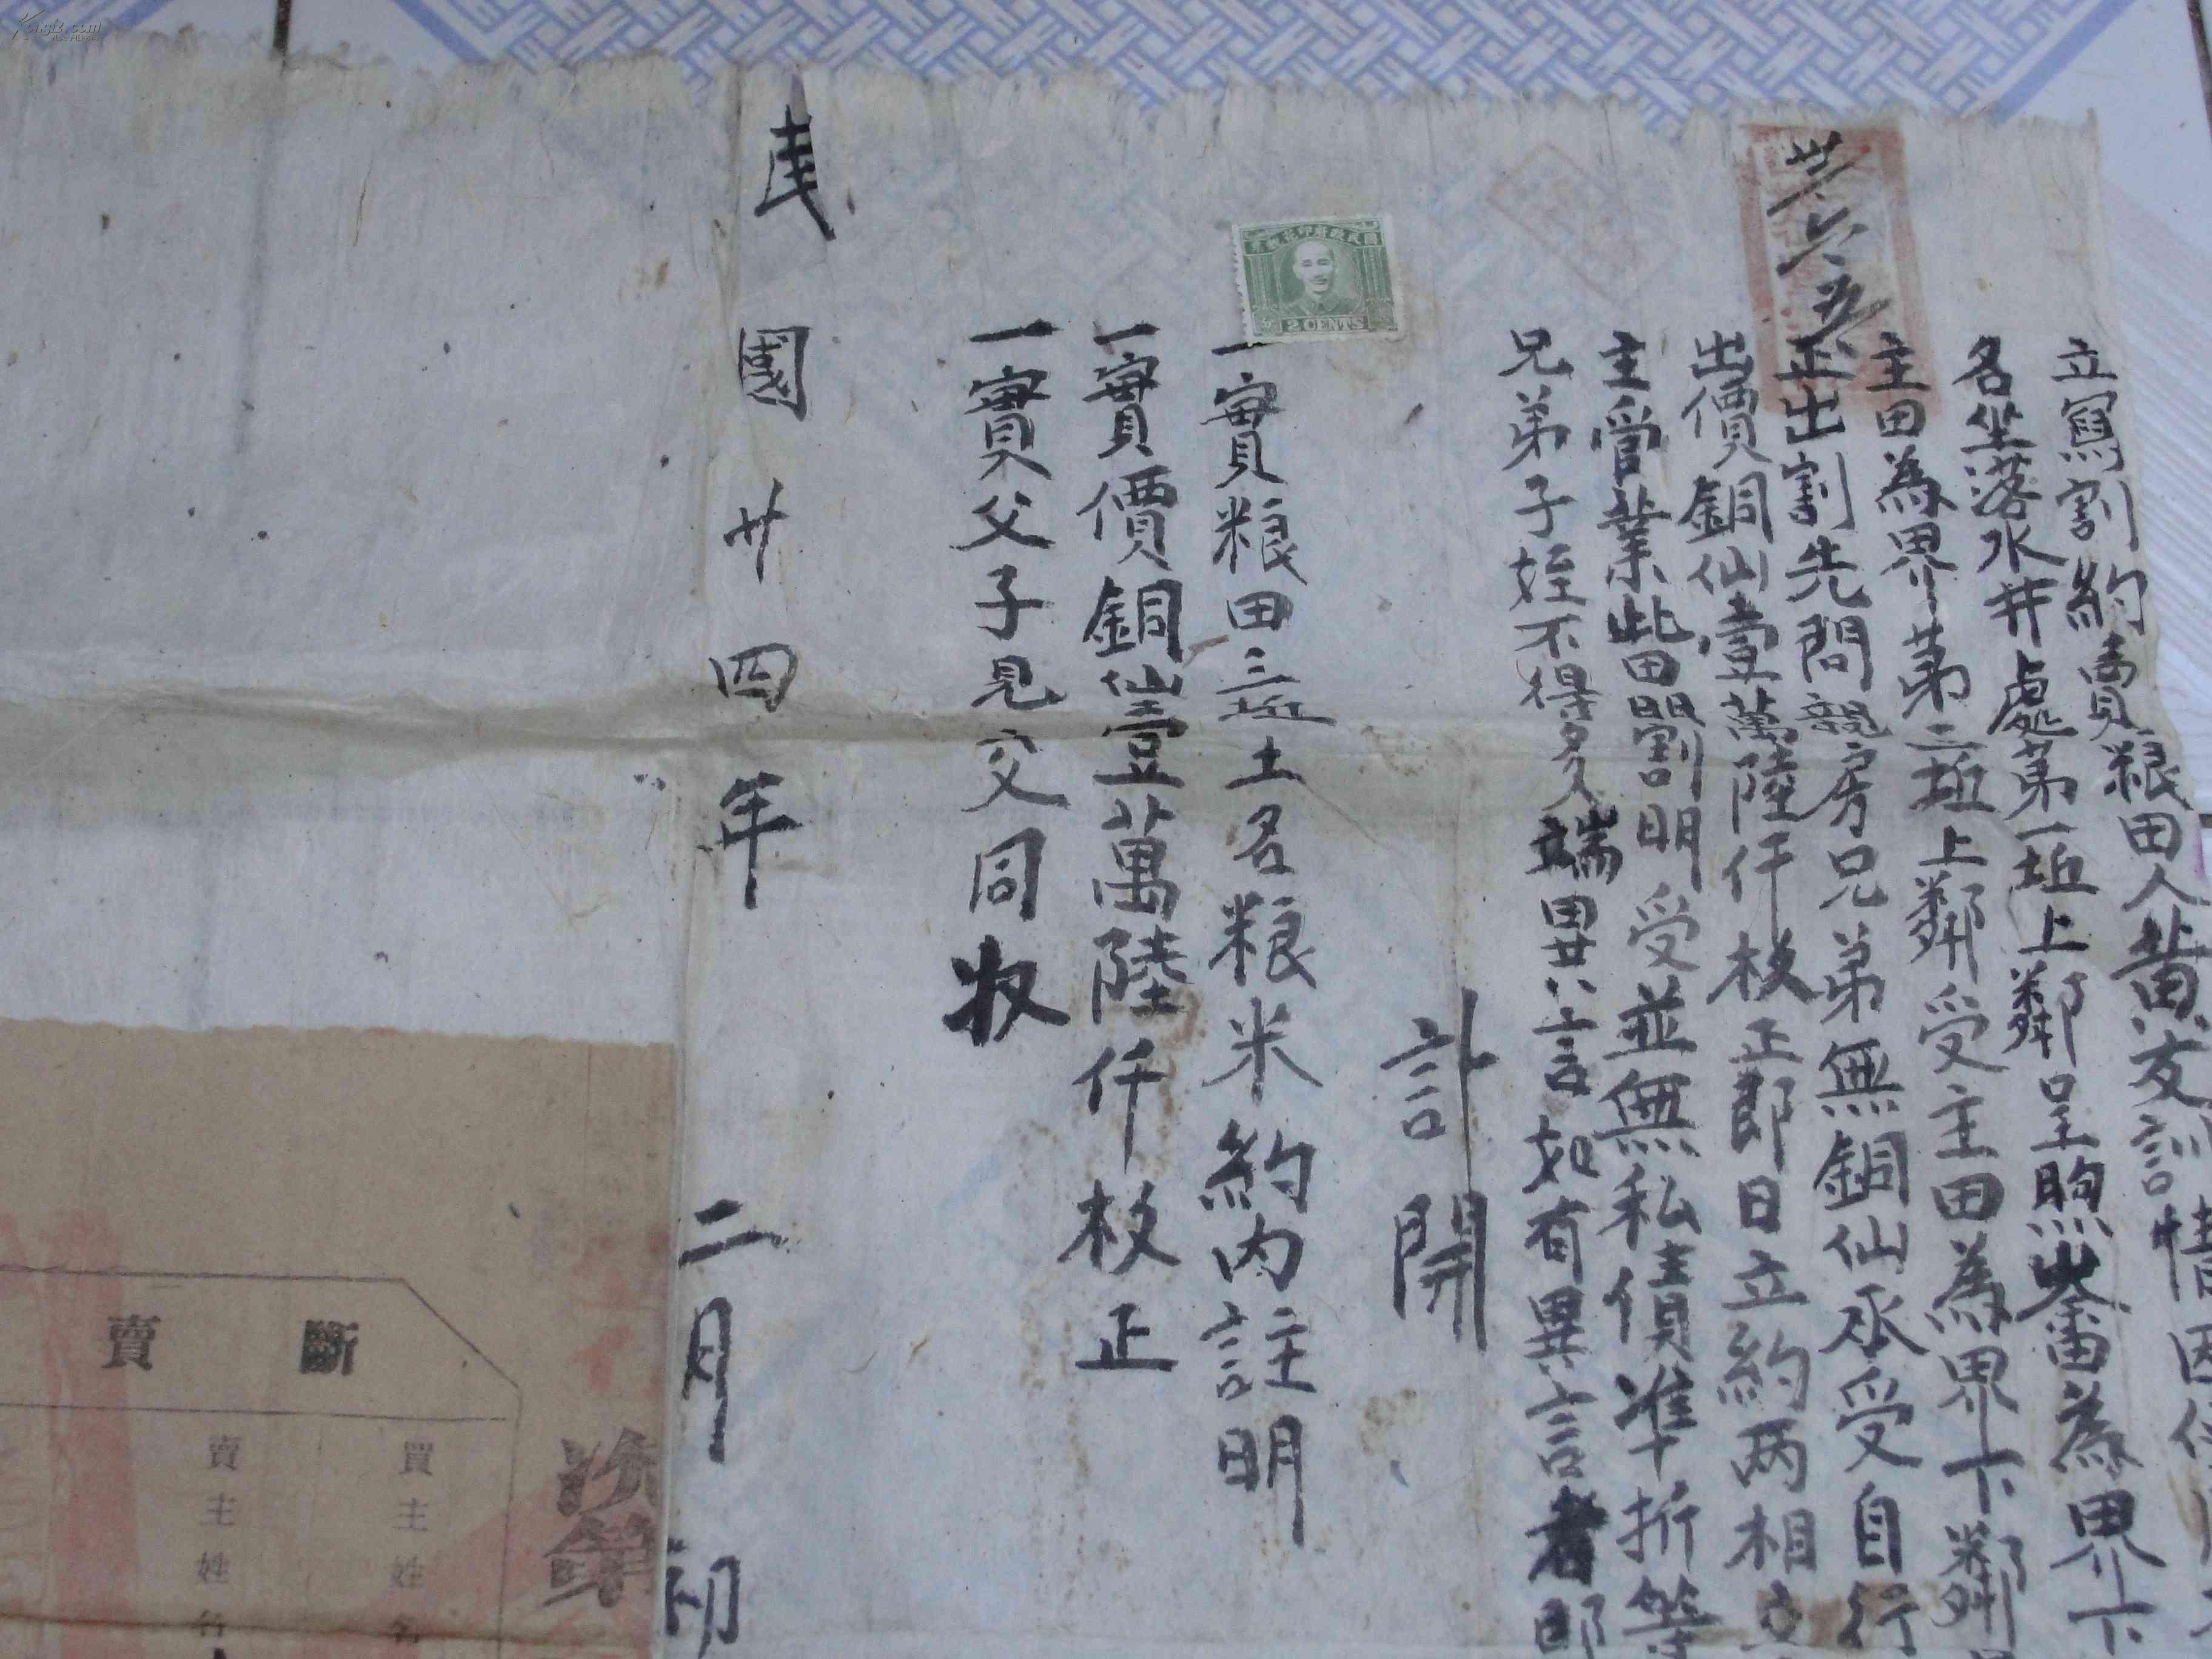 立寫割約賣粮田人黃友訓情因
各坐落水井處第一坵上鄰呈照畨為界下
主田為界第二坵上鄰受主田為界下鄰
正出割先問親房兄弟無銅仙承受自行
出價銅仙壹萬陸仟枚正即日立約两相交
主管業此田割明受並無私債準折等
兄弟子姪不得多端異言如有異言者即
訃開
一實粮田三坵土名粮米約内註明
一實價銅仙壹萬陸仟枚正
一實父子見交同收
民國廿四年二月初
卅六五
國民政府印花稅票
2 CENTS
斷賣
買主姓名
賣主姓名